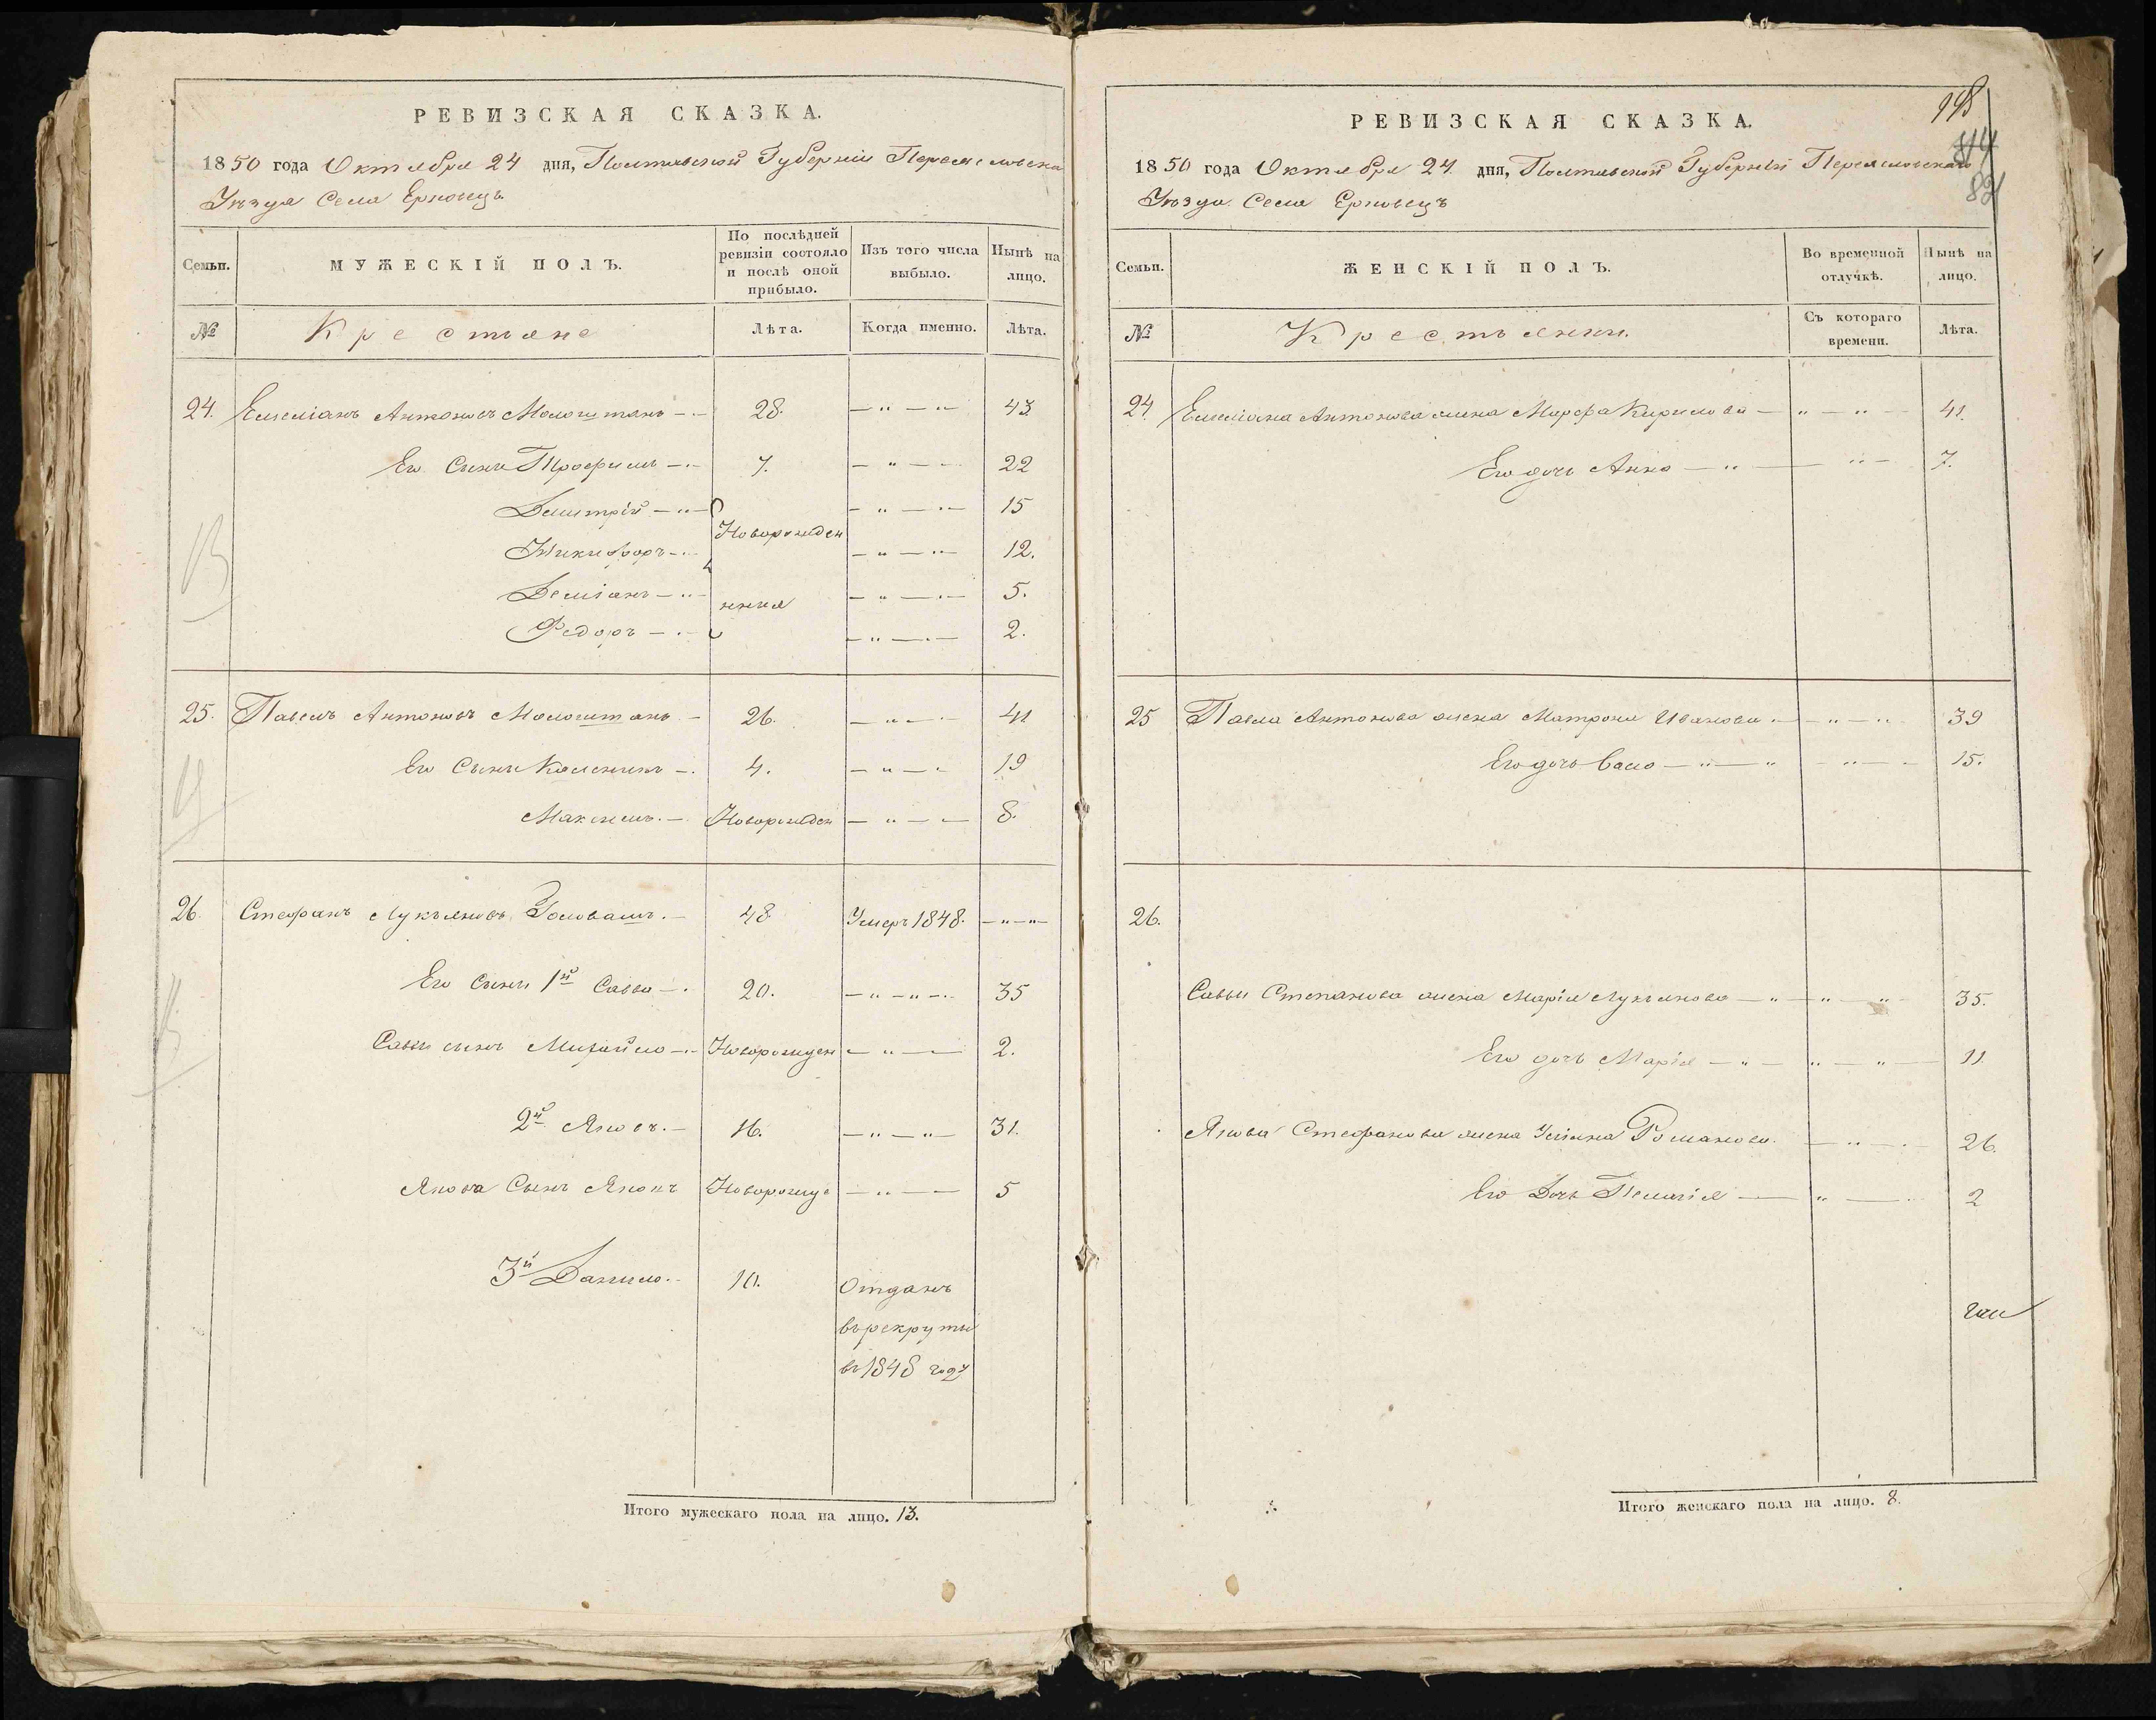 РЕВИЗСКАЯ СКАЗКА.
1850 года Октября 24 дня, Полтавской Губерніи Переяславска
Уѣзда Села Ерковецъ
Семьи.
МУЖЕСКІЙ ПОЛЪ.
По послѣдней ревизіи состояло и послѣ оной прибыло.
Изъ того числа выбыло.
Нынѣ на лицо.
№
Крестьяне
Лѣта.
Когда именно.
Лѣта.
24. Емеліанъ Антоновъ 28. 43
Его Сынъ Трофимъ 7. 22
Дмитрій 15
Новорожден
Никифоръ 12.
Деміанъ 5.
нныя
Федоръ 2.
25. Павелъ Антоновъ 26. 41
Его Сынъ Каленикъ 4. 19
Максимъ. Новорожден 8.
26. Стефанъ Лукъяновъ Головашъ. 48 Умеръ 1848.
Его Сынъ 1й Савва 20. 35
Саввы сынъ Михайло Новорожден 2.
2й Яковъ. 16. 31.
Якова Сынъ Яковъ Новорожде 5
3й Данило. 10. Отданъ
въ рекруты
въ 1848 году
Итого мужескаго пола на лицо. 13.
РЕВИЗСКАЯ СКАЗКА.
148
82
1850 года Октября 24. дня, Полтавской Губерніи Переяславскаго
Уѣзда Села Ерковецъ
Семьи.
ЖЕНСКІЙ ПОЛЪ.
Во временной отлучкѣ.
Нынѣ на лицо.
№
Крестьянки.
Съ котораго времени.
Лѣта.
24. Емеліана Антонова жена Марфа Кирилова 41.
Его дочь Анна 7.
25 Павла Антонова жена Матрона Иванова 39
Его дочь 15.
26.
Саввы Степанова жена Марія Лукъянова 35.
Его дочь Марія 11
Якова Стефанова жена Уліяна Романова. 26.
Его Дочь Пелагія 2
Итого женскаго пола на лицо. 8.